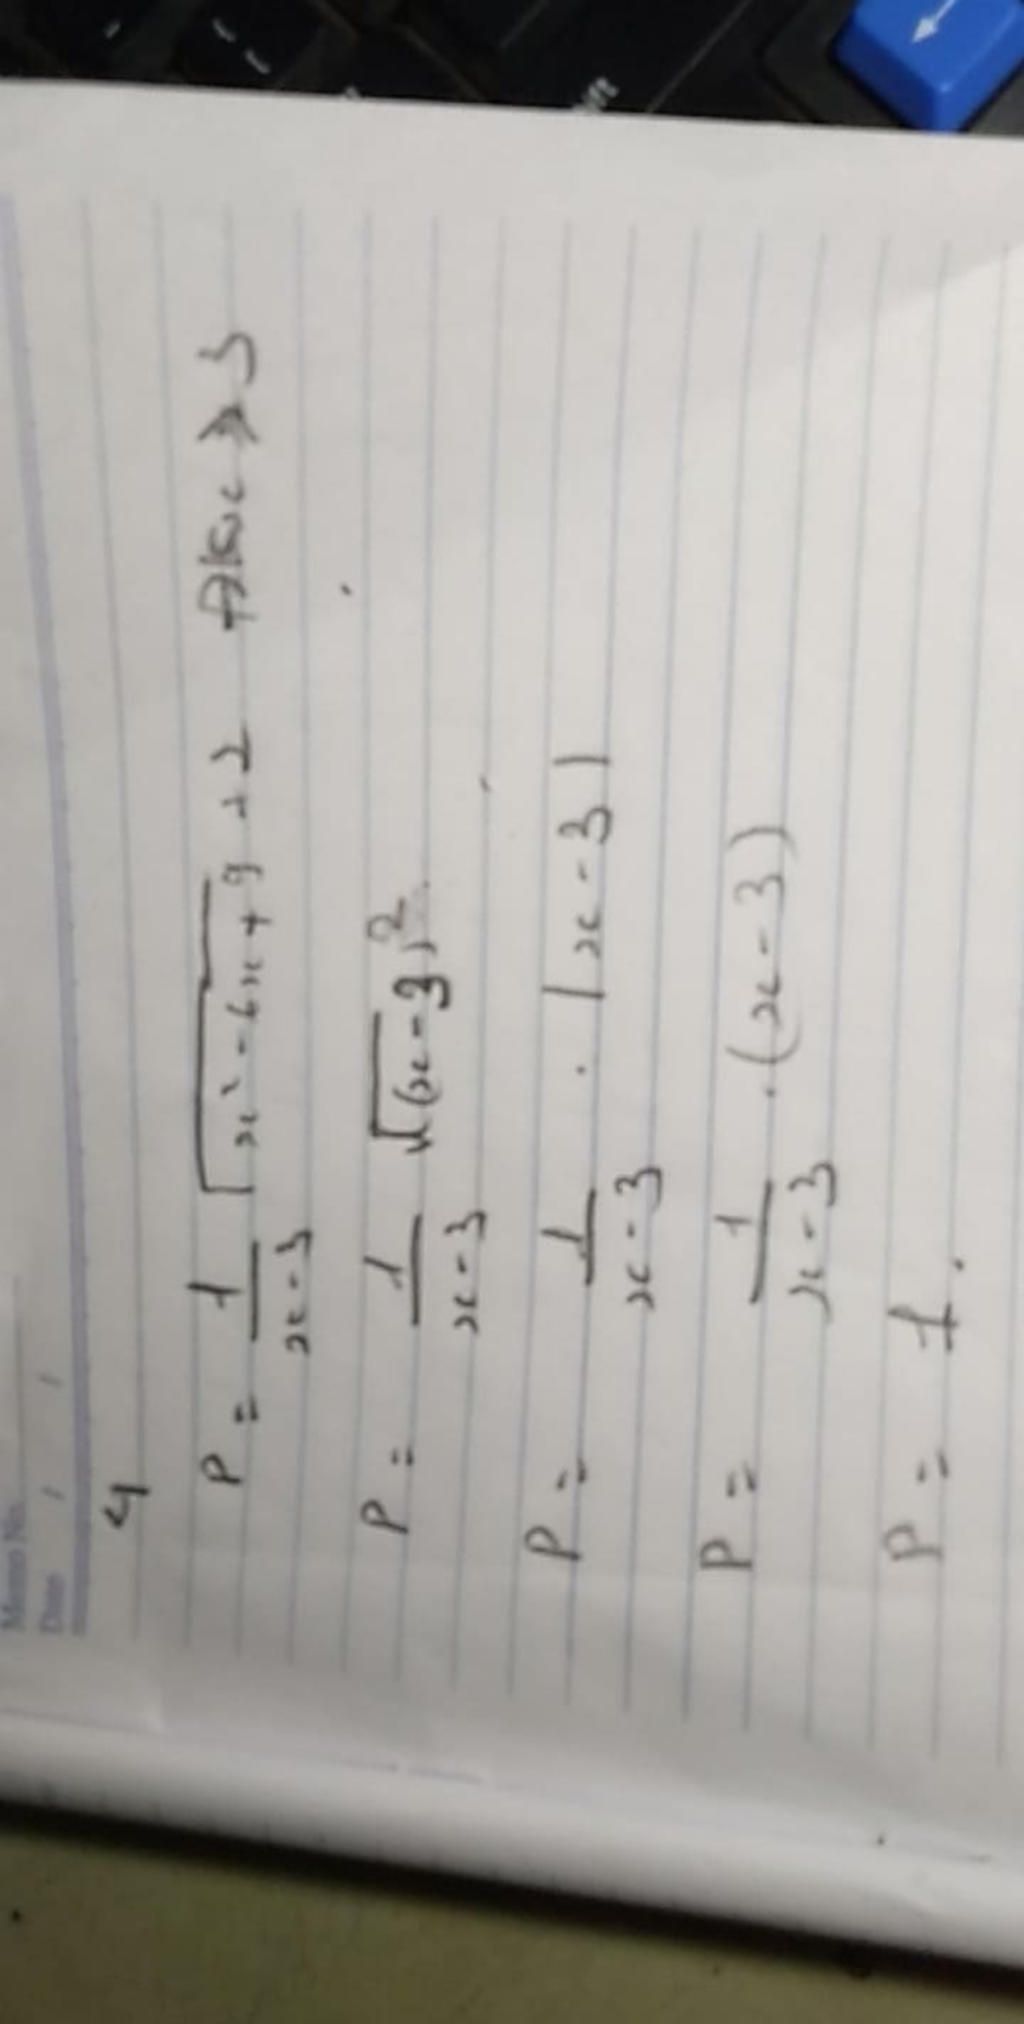 Memo No.
Date / /
4
P = 1/(x-3) √(x²-6x+9) +2 x ≥ 3
P = 1/(x-3) √(x-3)²
P = 1/(x-3) . |x-3|
P = 1/(x-3) . (x-3)
P = 1.